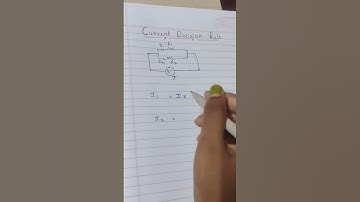 Current Division Rule
I₁ R₁
I₂ R₂
I
I₁ = I x
I₂ =